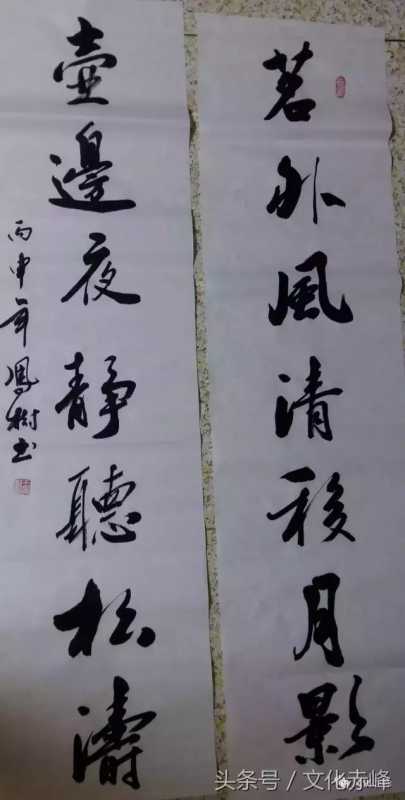 茗外風清移月影
壺邊夜靜聽松濤
丙申年鳳樹书
头条号／文化赤峰